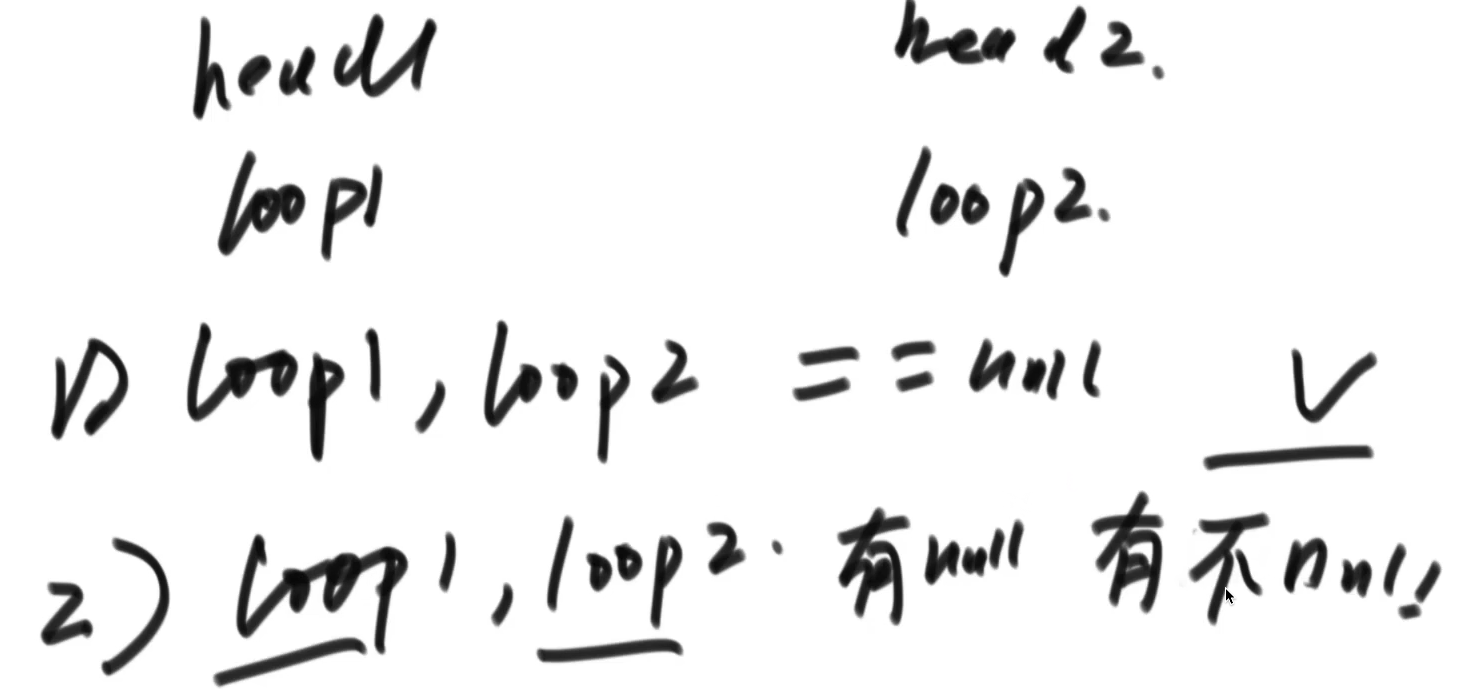 head1 head2.
loop1 loop2.
1) loop1, loop2 == null √
2) loop1, loop2. 有null 有不null!